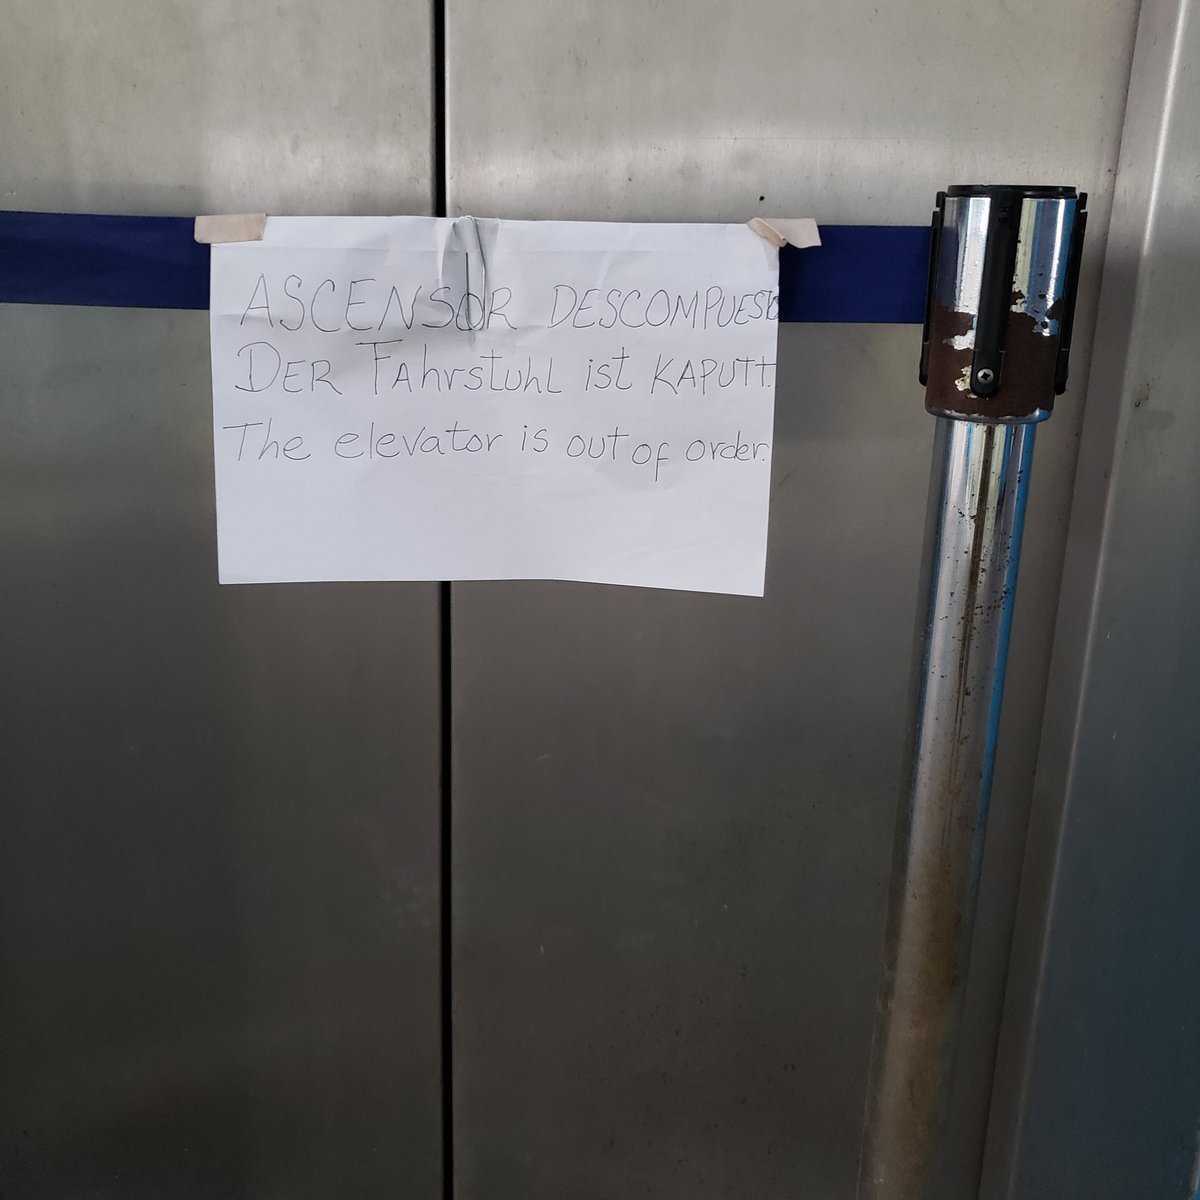 ASCENSOR DESCOMPUESTO
DER FAhrstuhl ist KAPUTT.
The elevator is out of order.